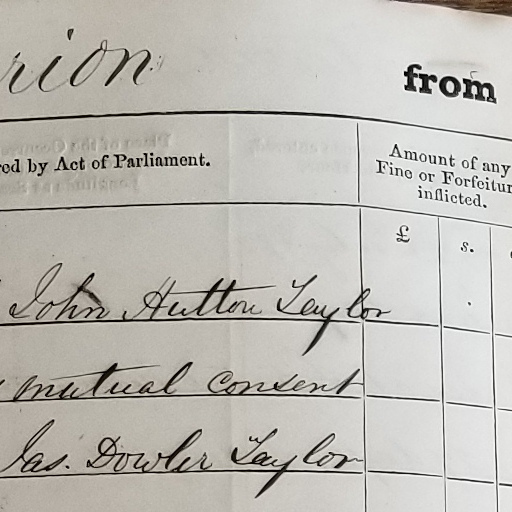 rion from
red by Act of Parliament.
Amount of any
Fine or Forfeitur
inflicted.
£ s.
John Hutton Taylor
mutual consent
Jas. Dowler Taylor